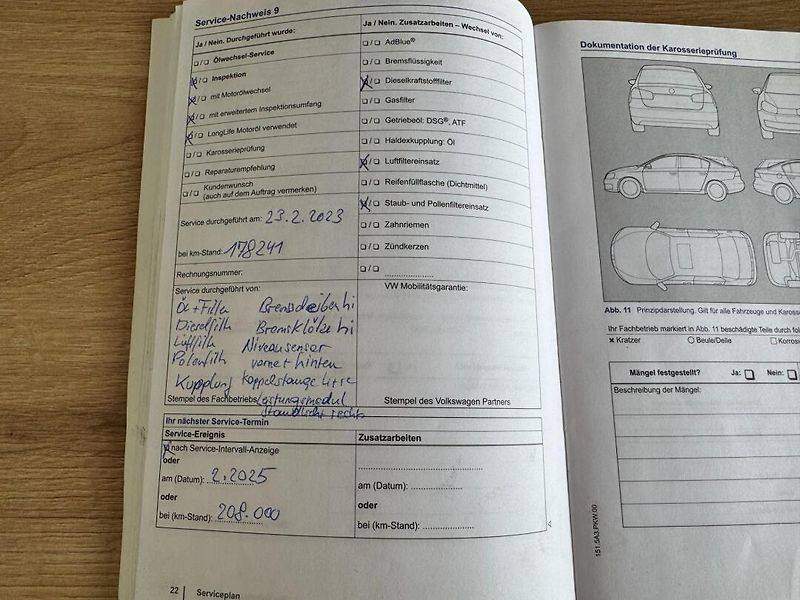 Service-Nachweis 9
Ja / Nein. Durchgeführt wurde:
Ölwechsel-Service
Inspektion
mit Motorölwechsel
mit erweitertem Inspektionsumfang
LongLife Motoröl verwendet
Karosserieprüfung
Reparaturempfehlung
Kundenwunsch
(auch auf dem Auftrag vermerken)
Service durchgeführt am: 23.2.2023
bei km-Stand: 178241
Rechnungsnummer:
Ja / Nein. Zusatzarbeiten – Wechsel von:
AdBlue®
Bremsflüssigkeit
Dieselkraftstofffilter
Gasfilter
Getriebeöl: DSG®, ATF
Haldexkupplung: Öl
Luftfiltereinsatz
Reifenfüllflasche (Dichtmittel)
Staub- und Pollenfiltereinsatz
Zahnriemen
Zündkerzen
Service durchgeführt von:
Öl+Filter
Dieselfilter
Luftfilter
Polenfilter
Kupplung
Bremsscheiben hi
Bremsklötze hi
Niveausensor
vorne+hinten
Koppelstange
Leistungsmodul
Standlicht rechts
Stempel des Fachbetriebs
VW Mobilitätsgarantie:
Stempel des Volkswagen Partners
Ihr nächster Service-Termin
Service-Ereignis
nach Service-Intervall-Anzeige
oder
am (Datum): 2.2025
oder
bei (km-Stand): 208.000
Zusatzarbeiten
am (Datum):
oder
bei (km-Stand):
22 Serviceplan
Dokumentation der Karosserieprüfung
Abb. 11 Prinzipdarstellung. Gilt für alle Fahrzeuge und
Ihr Fachbetrieb markiert in Abb. 11 beschädigte Teile durch
x Kratzer Beule/Delle
Mängel festgestellt? Ja: Nein:
Beschreibung der Mängel:
151.5A3.PKW.00